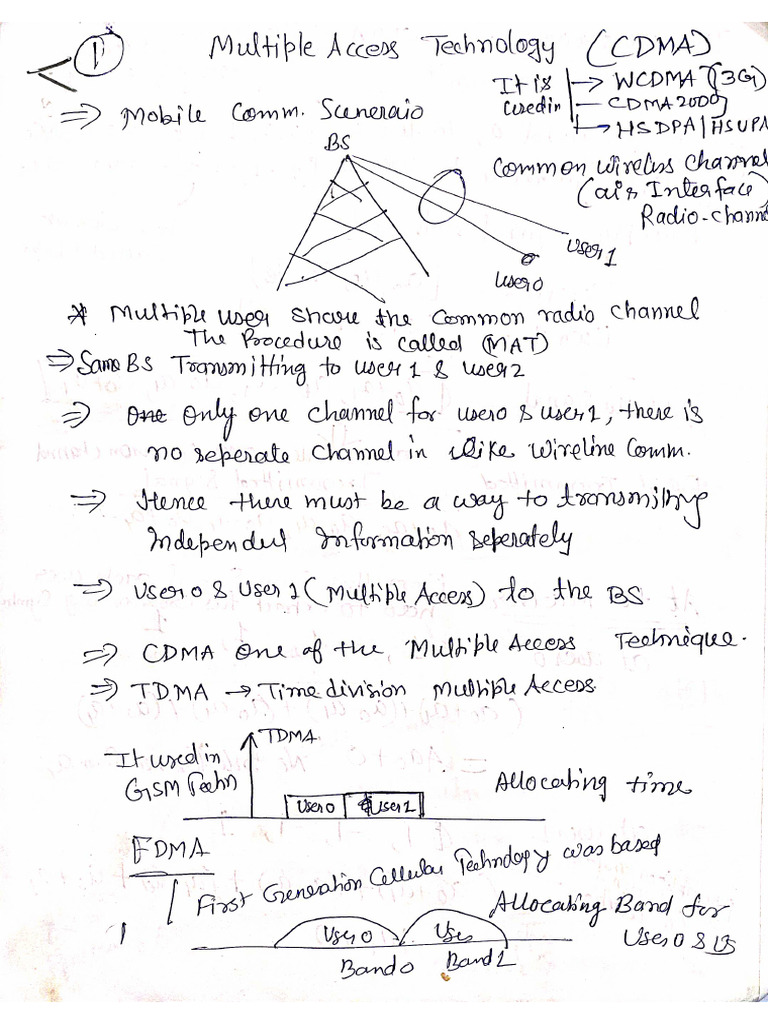 1
Multiple Access Technology (CDMA)
It is used in → WCDMA (3G)
— CDMA2000
→ HSDPA/HSUPA
⇒ Mobile Comm. Sceneraio
BS
Common wireless channel
(air Interface)
Radio-chann
User 1
User0
* Multiple user share the common radio channel
The Procedure is called (MAT)
⇒ Same BS Transmitting to user 1 & user2
⇒ One Only one channel for user0 & user1, there is
no seperate channel in like wireline Comm.
⇒ Hence there must be a way to transmiting
Independent Information seperately
⇒ User 0 & User 1 (Multiple Access) to the BS
⇒ CDMA one of the Multiple Access Technique.
⇒ TDMA → Time division Multiple Access.
TDMA
It used in
GSM Techn
User0 User1
Allocating time
FDMA
First Generation Cellular Technology was based
Allocating Band for
User 0 &
User0 User
Band0 Band1